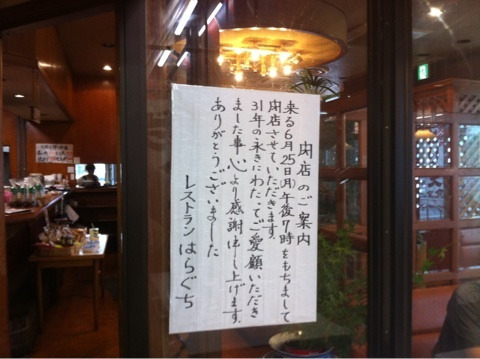 閉店のご案内
来る6月25日(月)午後7時をもちまして
閉店させていただきます。
31年の永きにわたってご愛顧いただき
ました事、心より感謝申し上げます。
ありがとうございました
レストラン はらぐち